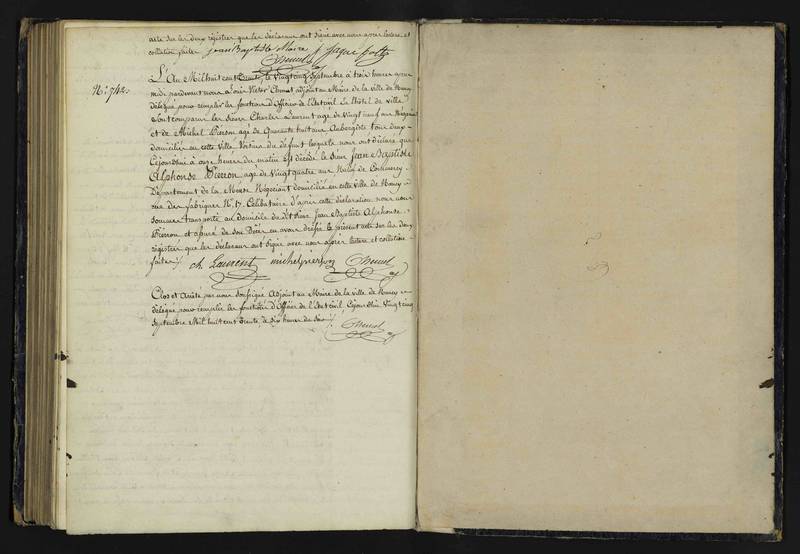 acte sur les deux registres que les déclarans ont signé avec nous après lecture et
collation faites jean Baptiste Maire Jaque
N.° 742.
L'An Mil huit cent Trente, le Vingt cinq Septembre à trois heures après
midi pardevant nous Louis Victor adjoint au Maire de la ville de Nancy
délégué pour remplir les fonctions d'Officier de l'état civil à l'hôtel de ville
sont comparus les sieurs Charles Laurent agé de Vingt neuf ans Négociant
et de Michel Pierson agé de Quarante huit ans Aubergiste tous deux
domiciliés en cette Ville Voisins du défunt lesquels nous ont déclaré que
Cejourd'hui à onze heures du matin Est décédé le Sieur Jean Baptiste
Alphonse Pierson agé de Vingt quatre ans Natif de Commercy
Département de la Meuse Négociant domicilié en cette ville de Nancy
rue des fabriques N.° 17. Célibataire d'après cette déclaration nous nous
sommes transporté au domicile du dit Sieur Jean Baptiste Alphonse
Pierson et assuré de son Décès en avons dressé le présent acte sur les deux
registres que les déclarans ont signé avec nous après lecture et collation
faites ch Laurent michel pierson
Clos et Arrêté par nous soussigné Adjoint au Maire de la ville de Nancy
délégué pour remplir les fonctions d'Officier de l'état civil, Cejourd'hui Vingt cinq
Septembre Mil huit cent Trente à six heures du soir